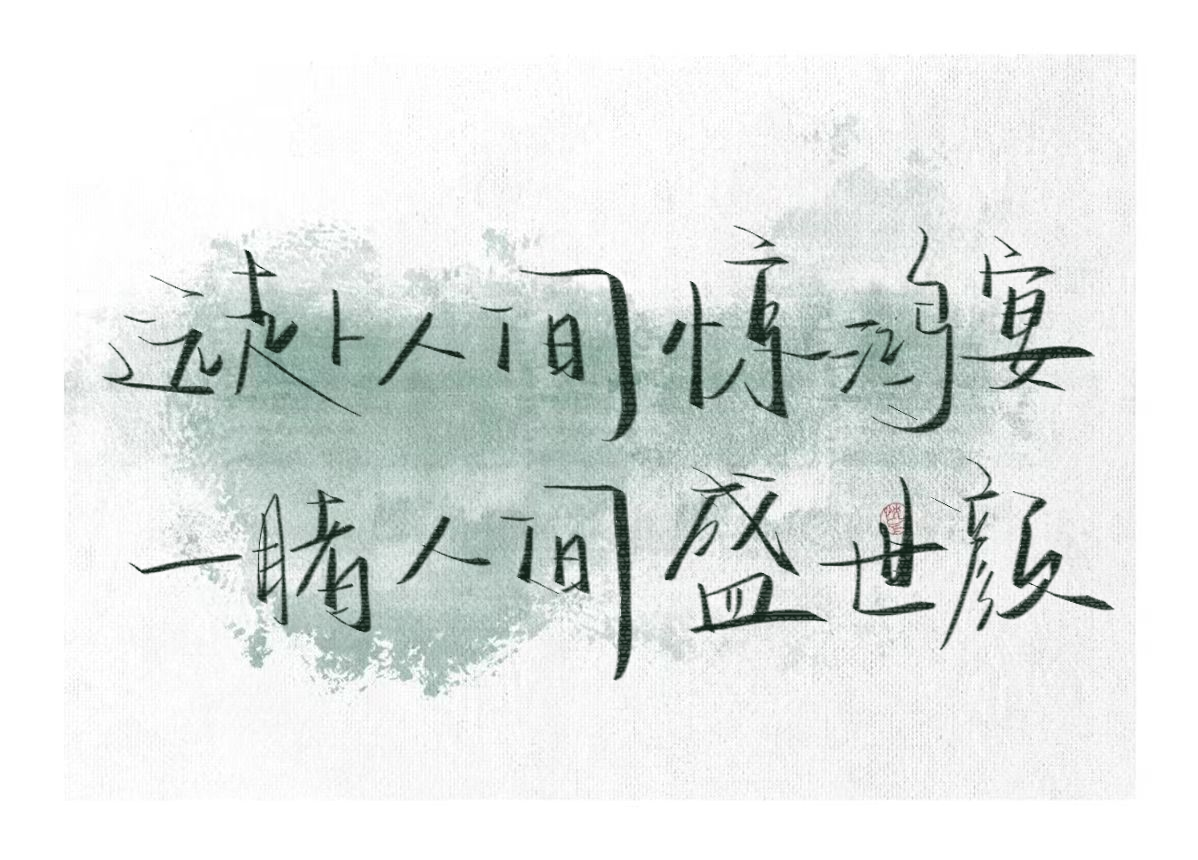 远赴人间惊鸿宴
一睹人间盛世颜